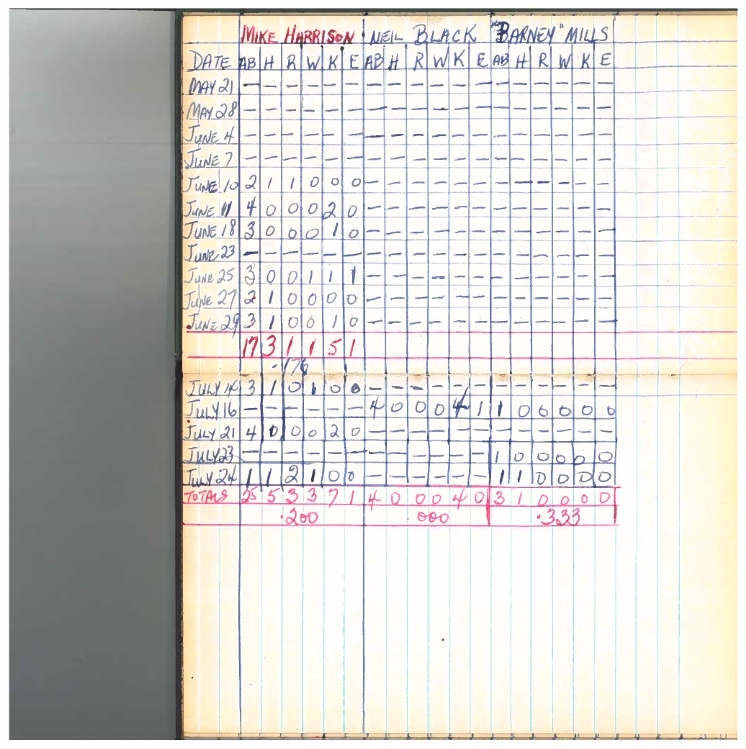 MIKE HARRISON NEIL BLACK "BARNEY" MILLS
DATE AB H R W K E AB H R W K E AB H R W K E
MAY 21 — — — — — — — — — — — — — — — — — —
MAY 28 — — — — — — — — — — — — — — — — — —
JUNE 4 — — — — — — — — — — — — — — — — — —
JUNE 7 — — — — — — — — — — — — — — — — — —
JUNE 10 2 1 1 0 0 0 — — — — — — — — — — — —
JUNE 11 4 0 0 0 2 0 — — — — — — — — — — — —
JUNE 18 3 0 0 0 1 0 — — — — — — — — — — — —
JUNE 23 — — — — — — — — — — — — — — — — — —
JUNE 25 3 0 0 1 1 1 — — — — — — — — — — — —
JUNE 27 2 1 0 0 0 0 — — — — — — — — — — — —
JUNE 29 3 1 0 0 1 0 — — — — — — — — — — — —
17 3 1 1 5 1
.176
JULY 14 3 1 0 1 0 0 — — — — — — — — — — — —
JULY 16 — — — — — — 4 0 0 0 4 1 1 0 0 0 0 0
JULY 21 4 0 0 0 2 0 — — — — — — — — — — — —
JULY 23 — — — — — — — — — — — — 1 0 0 0 0 0
JULY 24 1 1 2 1 0 0 — — — — — — 1 1 0 0 0 0
TOTALS 25 5 3 3 7 1 4 0 0 0 4 0 3 1 0 0 0 0
.200 .000 .333